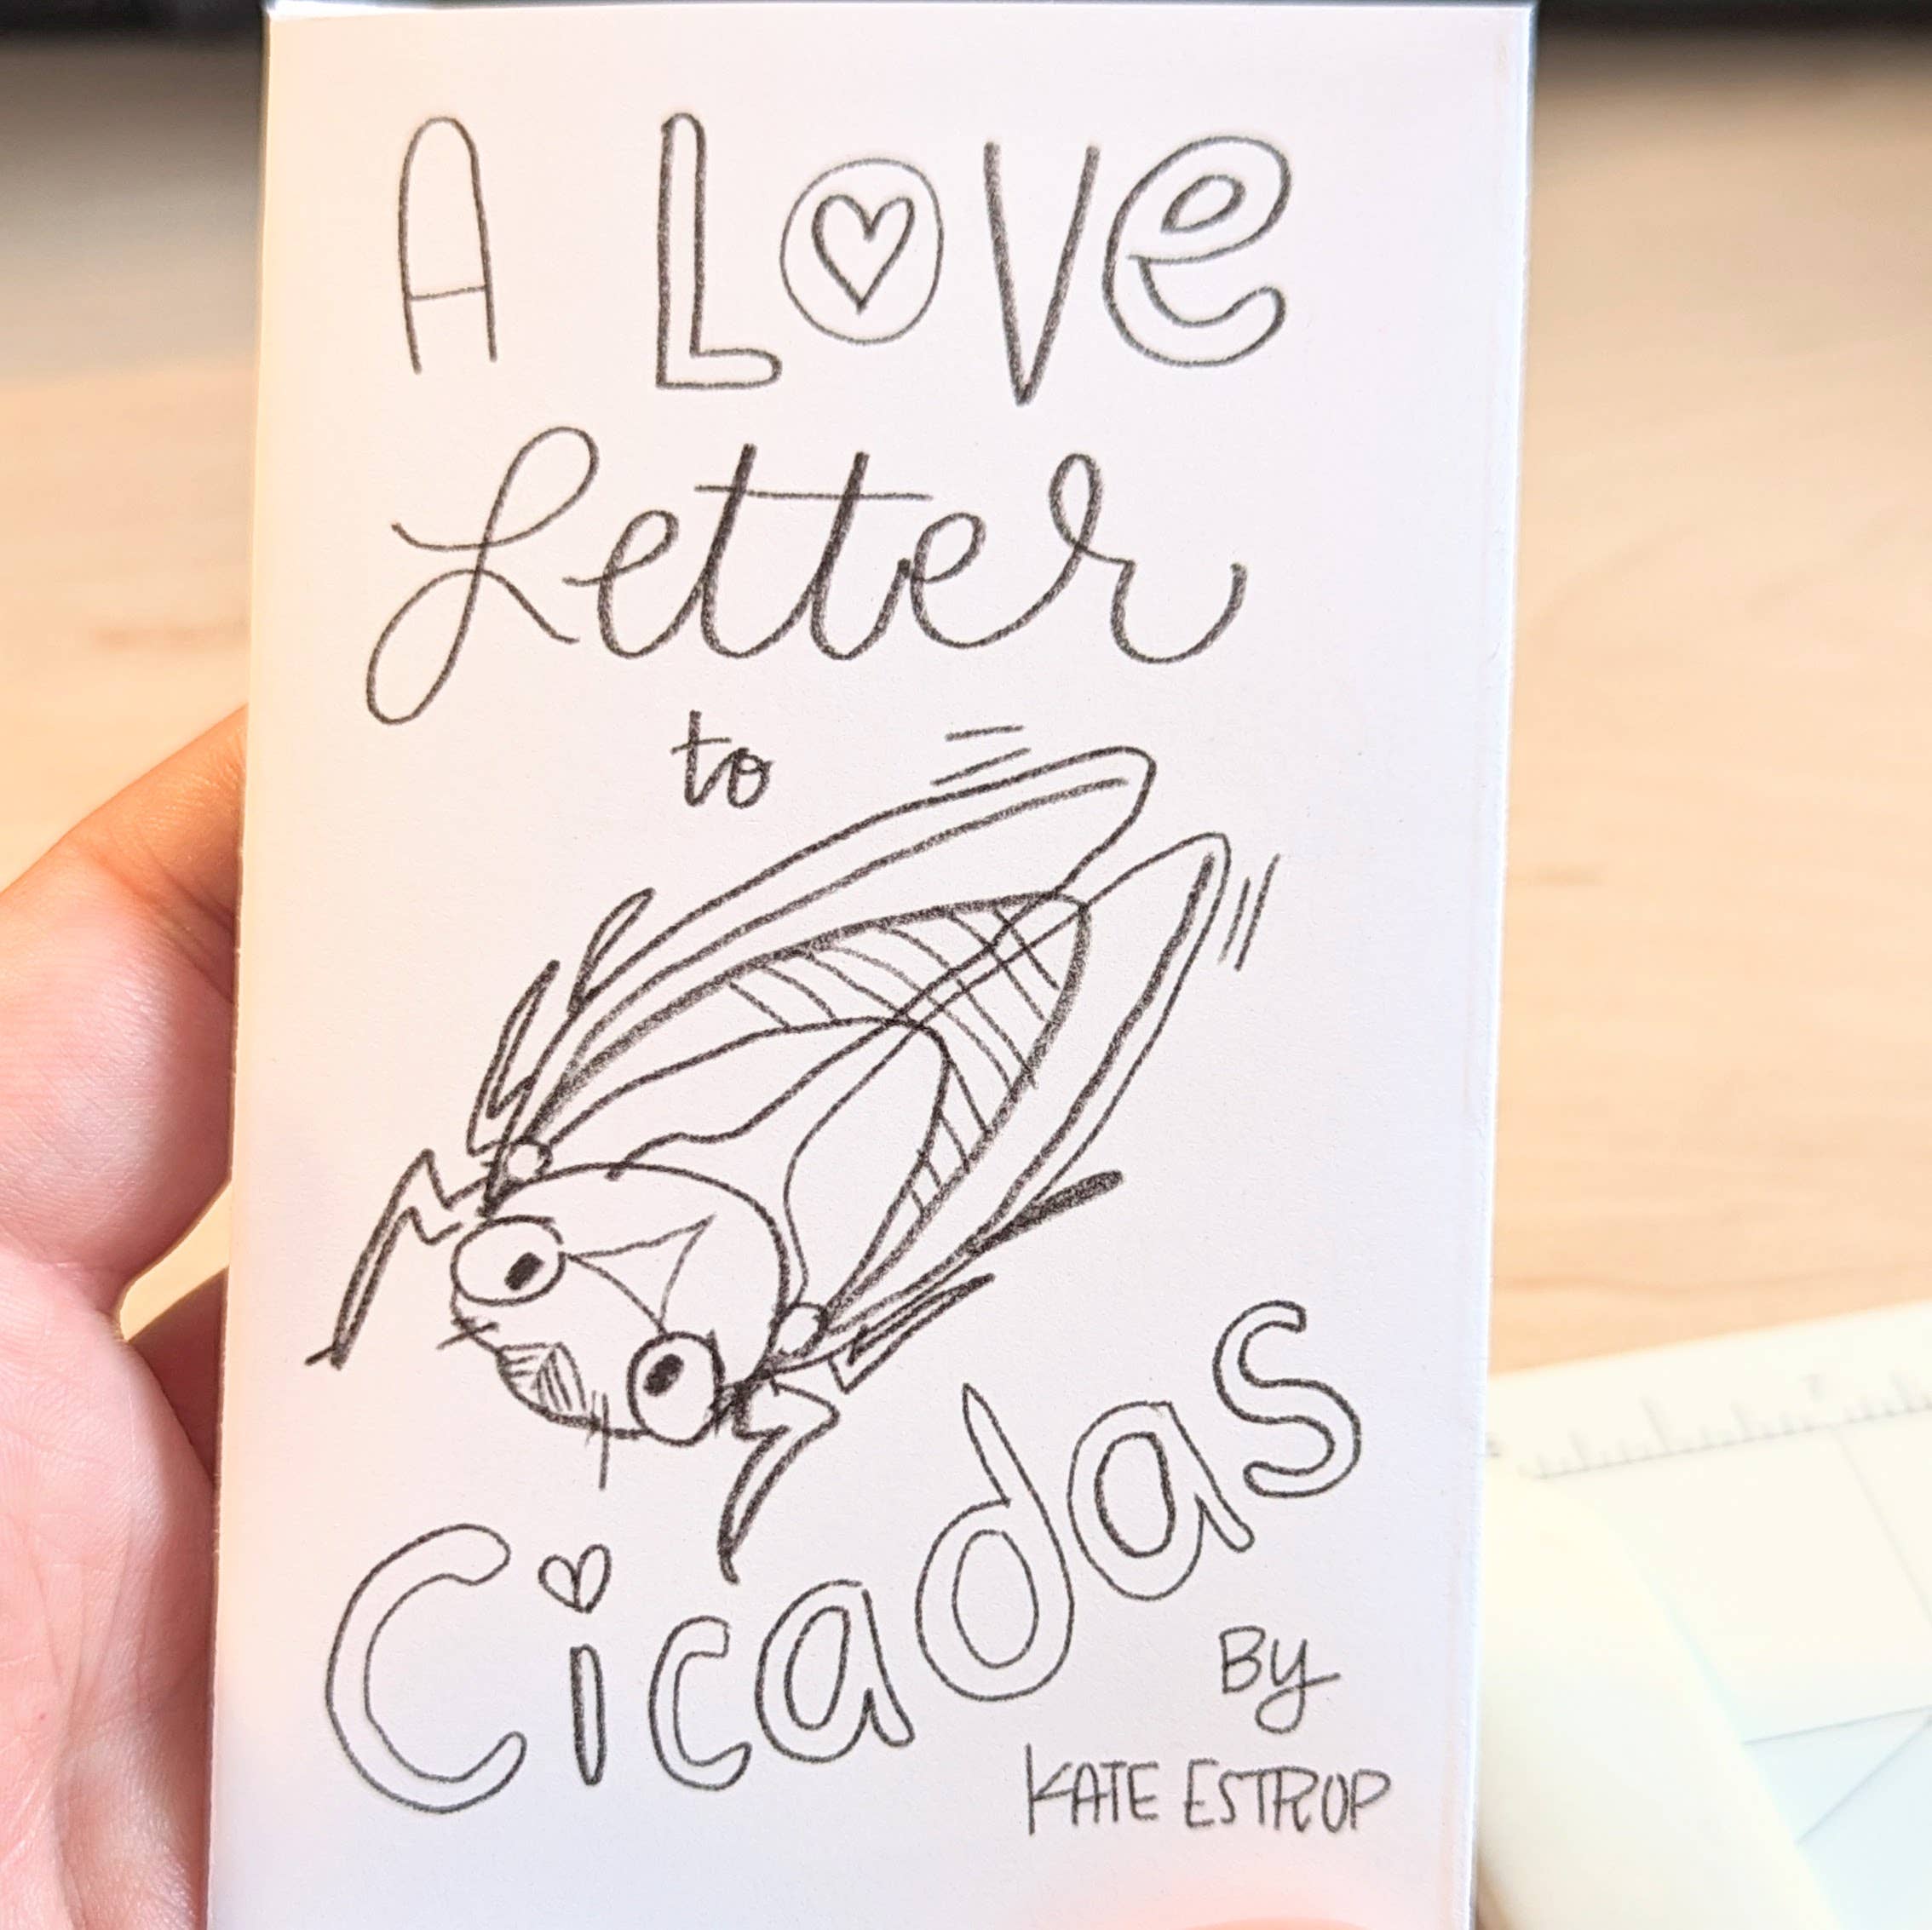 A LOVe
Letter
to
Cicadas
By
KATE ESTROP